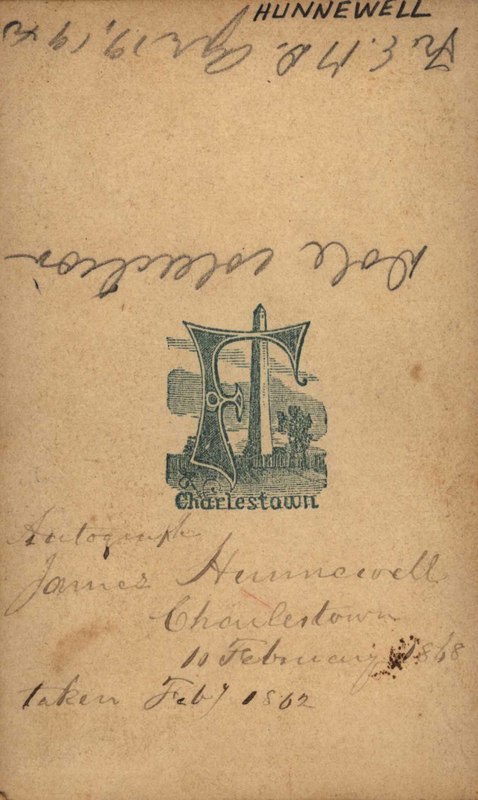 HUNNEWELL
Dole collection
Charlestown
Autograph
James Hunnewell
Charlestown
10 February 1868
taken Feby 1862